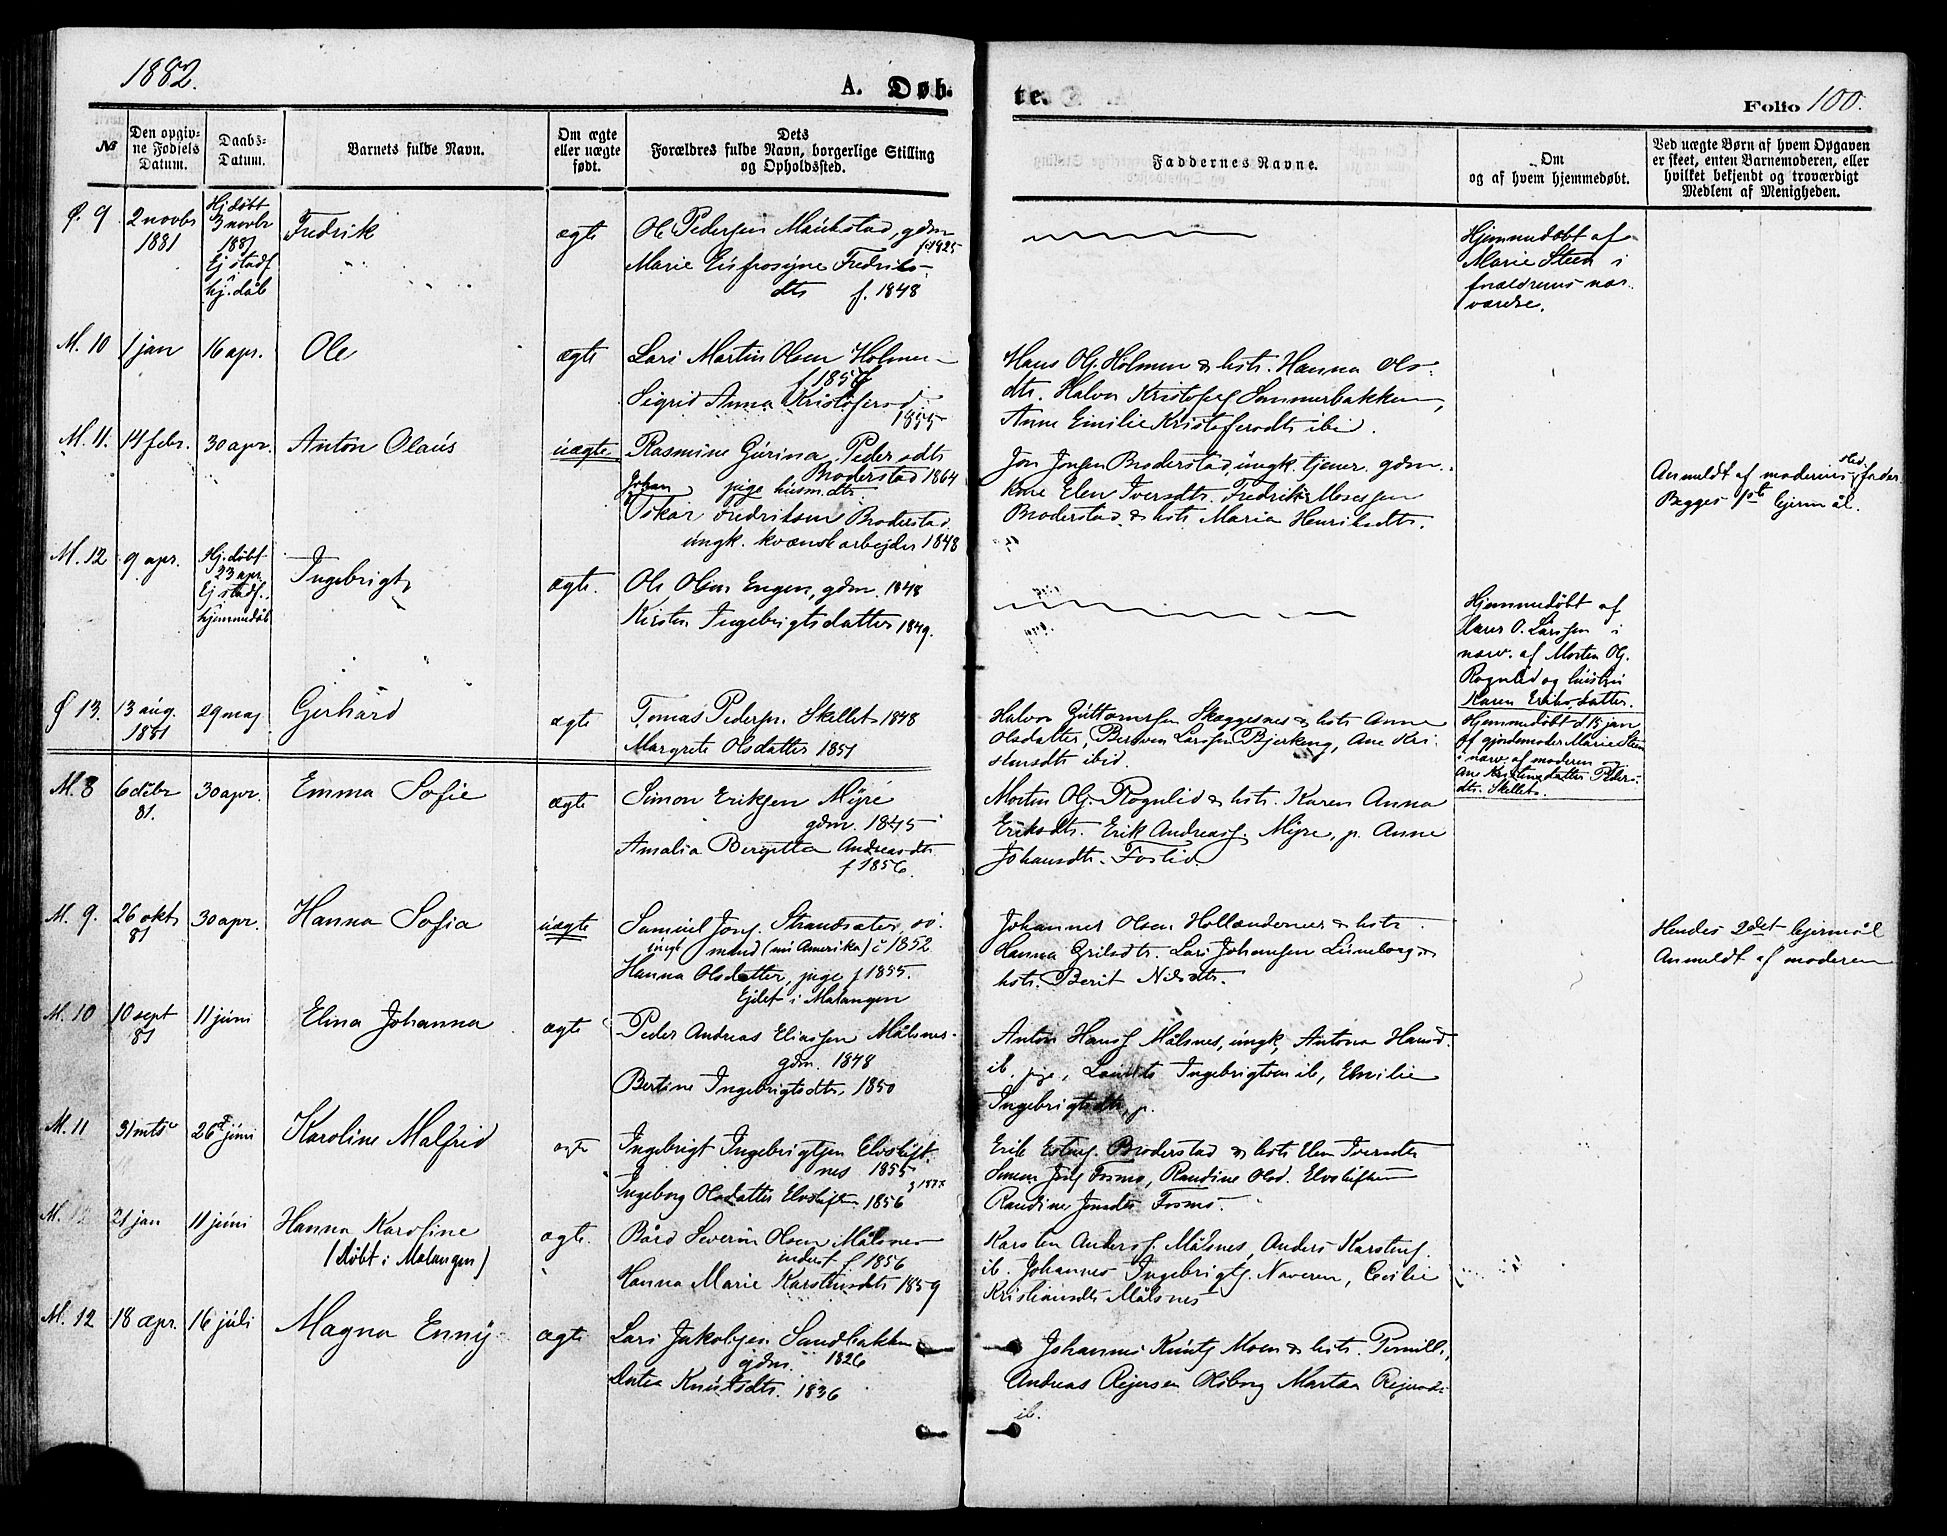 1882.
A. Døb-
te.
Folio 100.
№
Den opgiv-
ne Fødsels
Datum.
Daabs-
Datum.
Barnets fulde Navn.
Om ægte
eller uægte
født.
Dets
Forældres fulde Navn, borgerlige Stilling
og Opholdssted.
Faddernes Navne.
Om
og af hvem hjemmedøbt.
Ved uægte Børn af hvem Opgaven
er skeet, enten Barnemoderen, eller
hvilket bekjendt og troværdigt
Medlem af Menigheden.
9
2 novbr
1881
Hj.døbt
3 novbr
1881
Ej stadf
hj.dåb
Fredrik
ægte
Ole Pedersen gdm
f. 1825
Marie Eufrosyne Fredriks-
dtr f. 1848
Hjemmedøbt af
Marie Steen i
forældrenes nær-
værelse.
M. 10
1 jan
16 apr.
Ole
ægte
Lars Martin Olsen Holmen
Sigrid Anna Kristofersd
1855
Hans Olj. Holmen & hstr. Hanna Ols-
dtr. Halvor Kristofers Sommerbakken,
Anne Emilie Kristofersdtr ibi.
M. 11.
14 febr.
30 apr.
Anton Olaus
uægte
Rasmine Gurina Pedersdtr
Broderstad 1864
pige husm.dtr.
Johan
Oskar Fredriksen Broderstad
ungk. kvænsk arbejder 1848
Jon Jonsen Broderstad, ungk. tjener. gdm.
kone Elen Iversdtr. Fredrik Mosessen
Broderstad & hstr Maria Henriksdtr.
Anmeldt af moderens fader
Begges 1ste lejermål.
M. 12
9 apr.
Hj.døbt
23 apr.
Ej stadf.
hjemmedåb
Ingebrigt
ægte.
Ole Olsen Engen, gdm. 1848
Kirsten Ingebrigtsdatter 1849.
Hjemmedøbt af
O. Larssen i
nærv. af Morten Olj.
Rognlid og hustru
Karen Eriksdatter.
13.
13 aug.
1881
29 maj
Gerhard
ægte
Tomas Peders. Skellet 1848
Margrete Olsdatter 1851
Halvor Guttormsen Skæggesnes & hstr Anne
Olsdatter, Berten Larssen Bjerkeng, Ane Kri-
stensdtr ibid.
Hjemmedøbt d 15 jan
af gjordemoder Marie Steen
i nærv. af moderen og
Ane Kristinedatter Peders-
dtr. Skellet.
M. 8
6 dcbr
81.
30 apr.
Emma Sofie
ægte
Simon Eriksen Myre
gdm. 1845
Amalia Bergitta Andreasdtr.
f 1856.
Morten Olj. Rognlid & hstr. Karen Anna
Eriksdtr. Erik Andreass. Myre, p. Anne
Johansdtr. Foslid
M. 9.
26 oktr
81
30 apr.
Hanna Sofia
uægte
Samuel Jons. Strandsæter
ungk mand (nu i Amerika) 1852
Hanna Olsdatter, pige f 1855.
Ejdet i Malangen
Johannes Olsen Hollænderness & hstr.
Hanna Erilsdtr. Lars Johansen Lüneborg &
hstr. Berit Nilsdtr.
Hendes 2det lejermål
Anmeldt af moderen
M. 10
10 sept
81
11 juni
Elina Johanna
ægte
Peder Andreas Eliassen Målsnes-
gdm. 1848
Bertine Ingebrigtsdtr. 1850
Anton Hans. Målsnes, ungk, Antona Hansd.
ib. pige, Ingebrigtsen ib, Emilie
Ingebrigtsdtr, p.
M. 11
31 mts
26 juni
Karoline Malfrid
ægte
Ingebrigt Ingebrigtsen Elvskift-
nes 1855
Ingeborg Olsdatter Elvskiften 1856
Erik Broderstad & hstr Elen Iversdtr
Simon Fosmo, Randine Olsd. Elvskiften
Randine Jonsdtr Fosmo.
M. 12
21 jan
11 juni
Hanna Karoline
(døbt i Malangen)
ægte.
Bård Severin Olsen Målsnes
inderst f 1856
Hanna Marie Karstensdtr 1859
Karsten Anderss. Målsnes, Anders Karstens.
ib. Johannes Ingebrigts. Naveren, Cecilie
Kristiansdtr Målsnes
M. 12
18 apr.
16 juli
Magna Enny
ægte
Lars Jakobsen Sandbakken
gdm. 1826
Dortea Knutsdtr. 1836
Johannes Knuts Moen & hstr. Pernille,
Andreas Rejersen Olsborg Martaa Rejersd
ib.